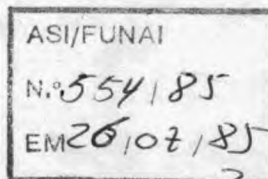 ASI/FUNAI
N.º 554/85
EM 26/07/85